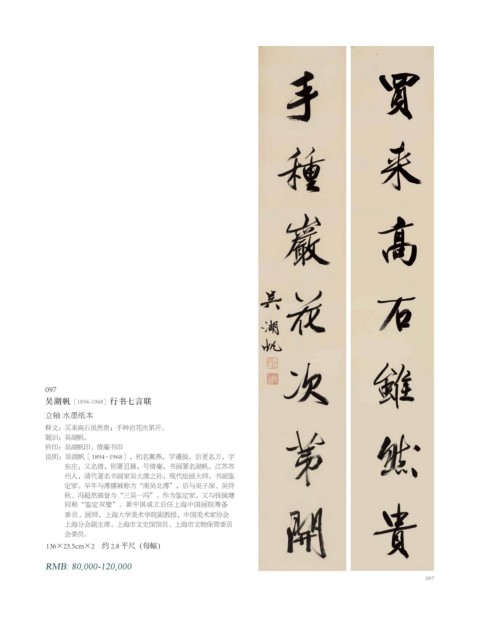 買来高石雖然貴
手種巖花次第開
吴湖帆
097
吴湖帆［1894-1968］行书七言联
立轴 水墨纸本
释文：买来高石虽然贵；手种岩花次第开。
题识：吴湖帆。
钤印：吴湖帆印、倩庵书印
说明：吴湖帆［1894-1968］，初名翼燕，字遹骏，后更名万，字
东庄，又名倩，别署丑簃，号倩庵，书画署名湖帆。江苏苏
州人，清代著名书画家吴大澂之孙，现代绘画大师、书画鉴
定家。早年与溥儒被称为“南吴北溥”，后与吴子深、吴待
秋、冯超然被誉为“三吴一冯”。作为鉴定家，又与钱镜塘
同称“鉴定双璧”。新中国成立后任上海中国画院筹备
委员、画师，上海大学美术学院副教授，中国美术家协会
上海分会副主席、上海市文史馆馆员、上海市文物保管委员
会委员。
136×23.5cm×2　约2.8平尺（每幅）
RMB: 80,000-120,000
097